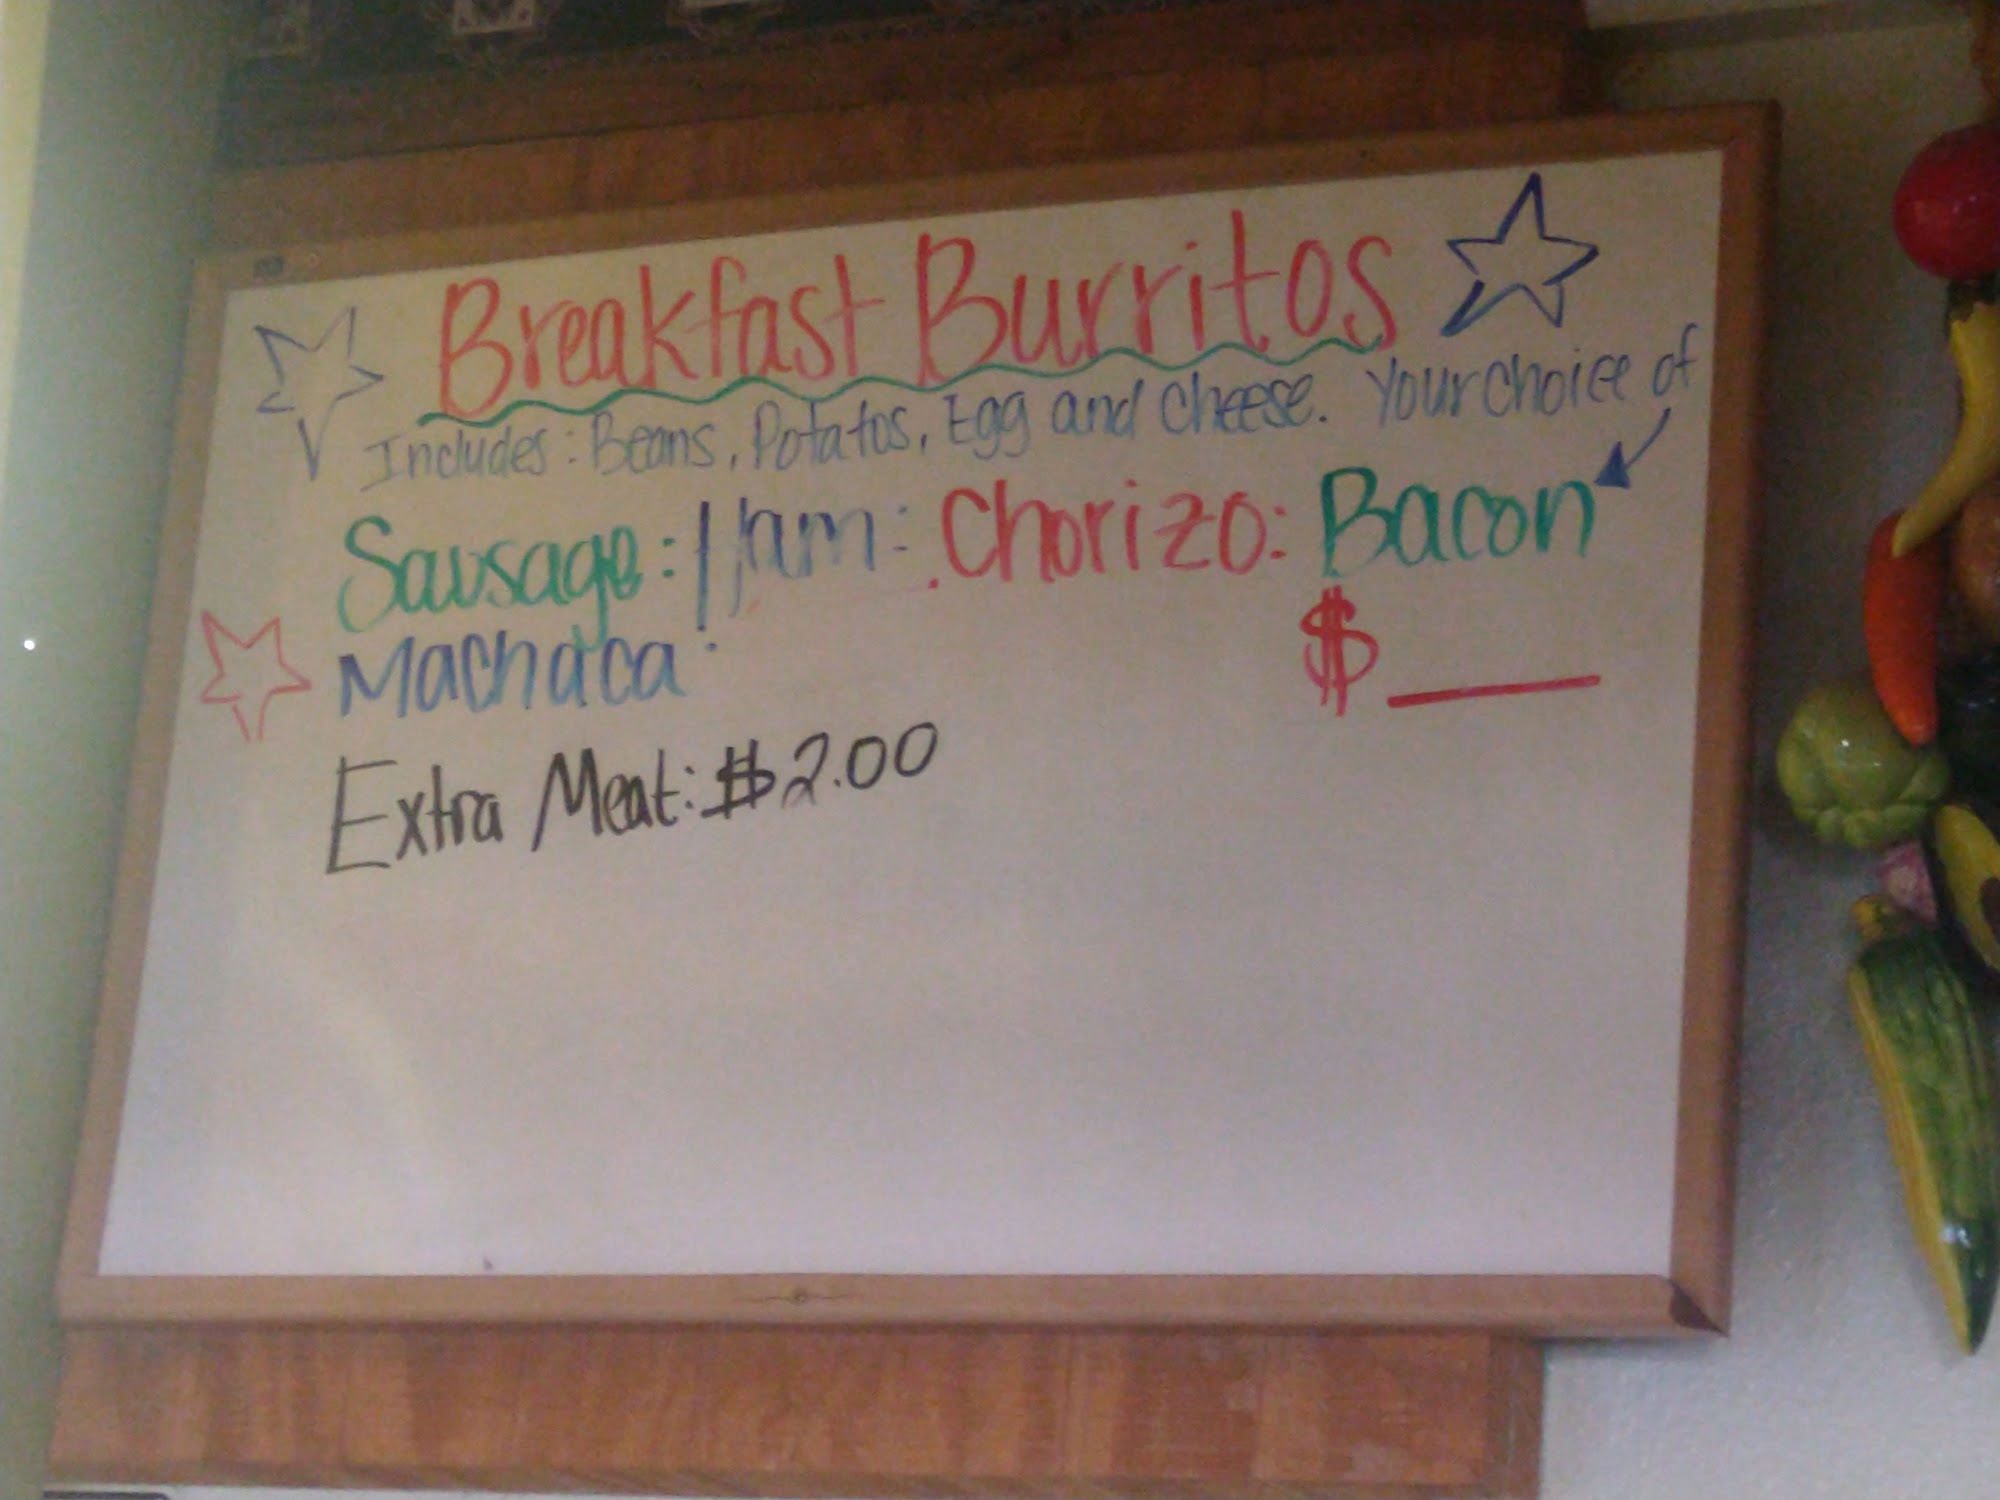 Breakfast Burritos
Includes: Beans, Potatos, Egg and Cheese. Your choice of
Sausage: Ham: Chorizo: Bacon
Machaca
$ ___
Extra Meat: $2.00